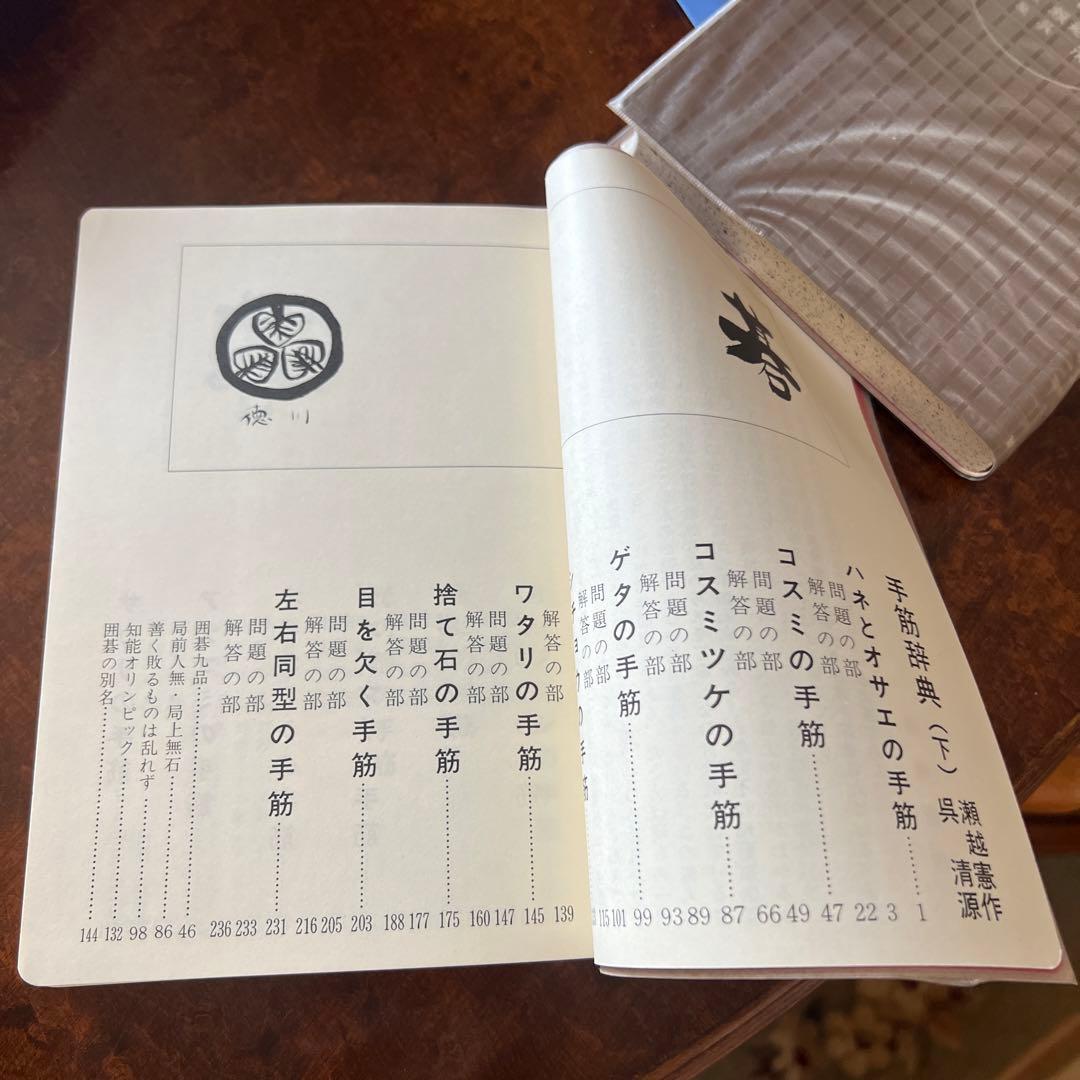 手筋辞典(下)
瀬越憲作
呉清源
ハネとオサエの手筋……1
問題の部 3
解答の部 22
コスミの手筋……47
問題の部 49
解答の部 66
コスミツケの手筋……87
問題の部 89
解答の部 93
ゲタの手筋……99
問題の部 101
解答の部 115
チョウの手筋
解答の部 139
ワタリの手筋……145
問題の部 147
解答の部 160
捨て石の手筋……175
問題の部 177
解答の部 188
目を欠く手筋……203
問題の部 205
解答の部 216
左右同型の手筋……231
問題の部 233
解答の部 236
囲碁九品……46
局前人無・局上無石……86
善く敗るものは乱れず……98
知能オリンピック……132
囲碁の別名……144
徳川